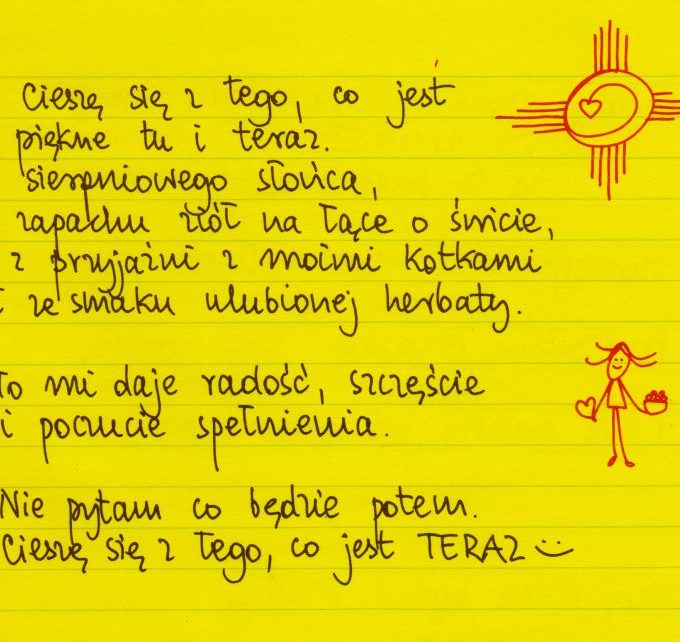 Cieszę się z tego, co jest
piękne tu i teraz.
sierpniowego słońca,
zapachu ziół na łące o świcie,
z przyjaźni z moimi kotkami
i ze smaku ulubionej herbaty.
To mi daje radość, szczęście
i poczucie spełnienia.
Nie pytam co będzie potem.
Cieszę się z tego, co jest TERAZ